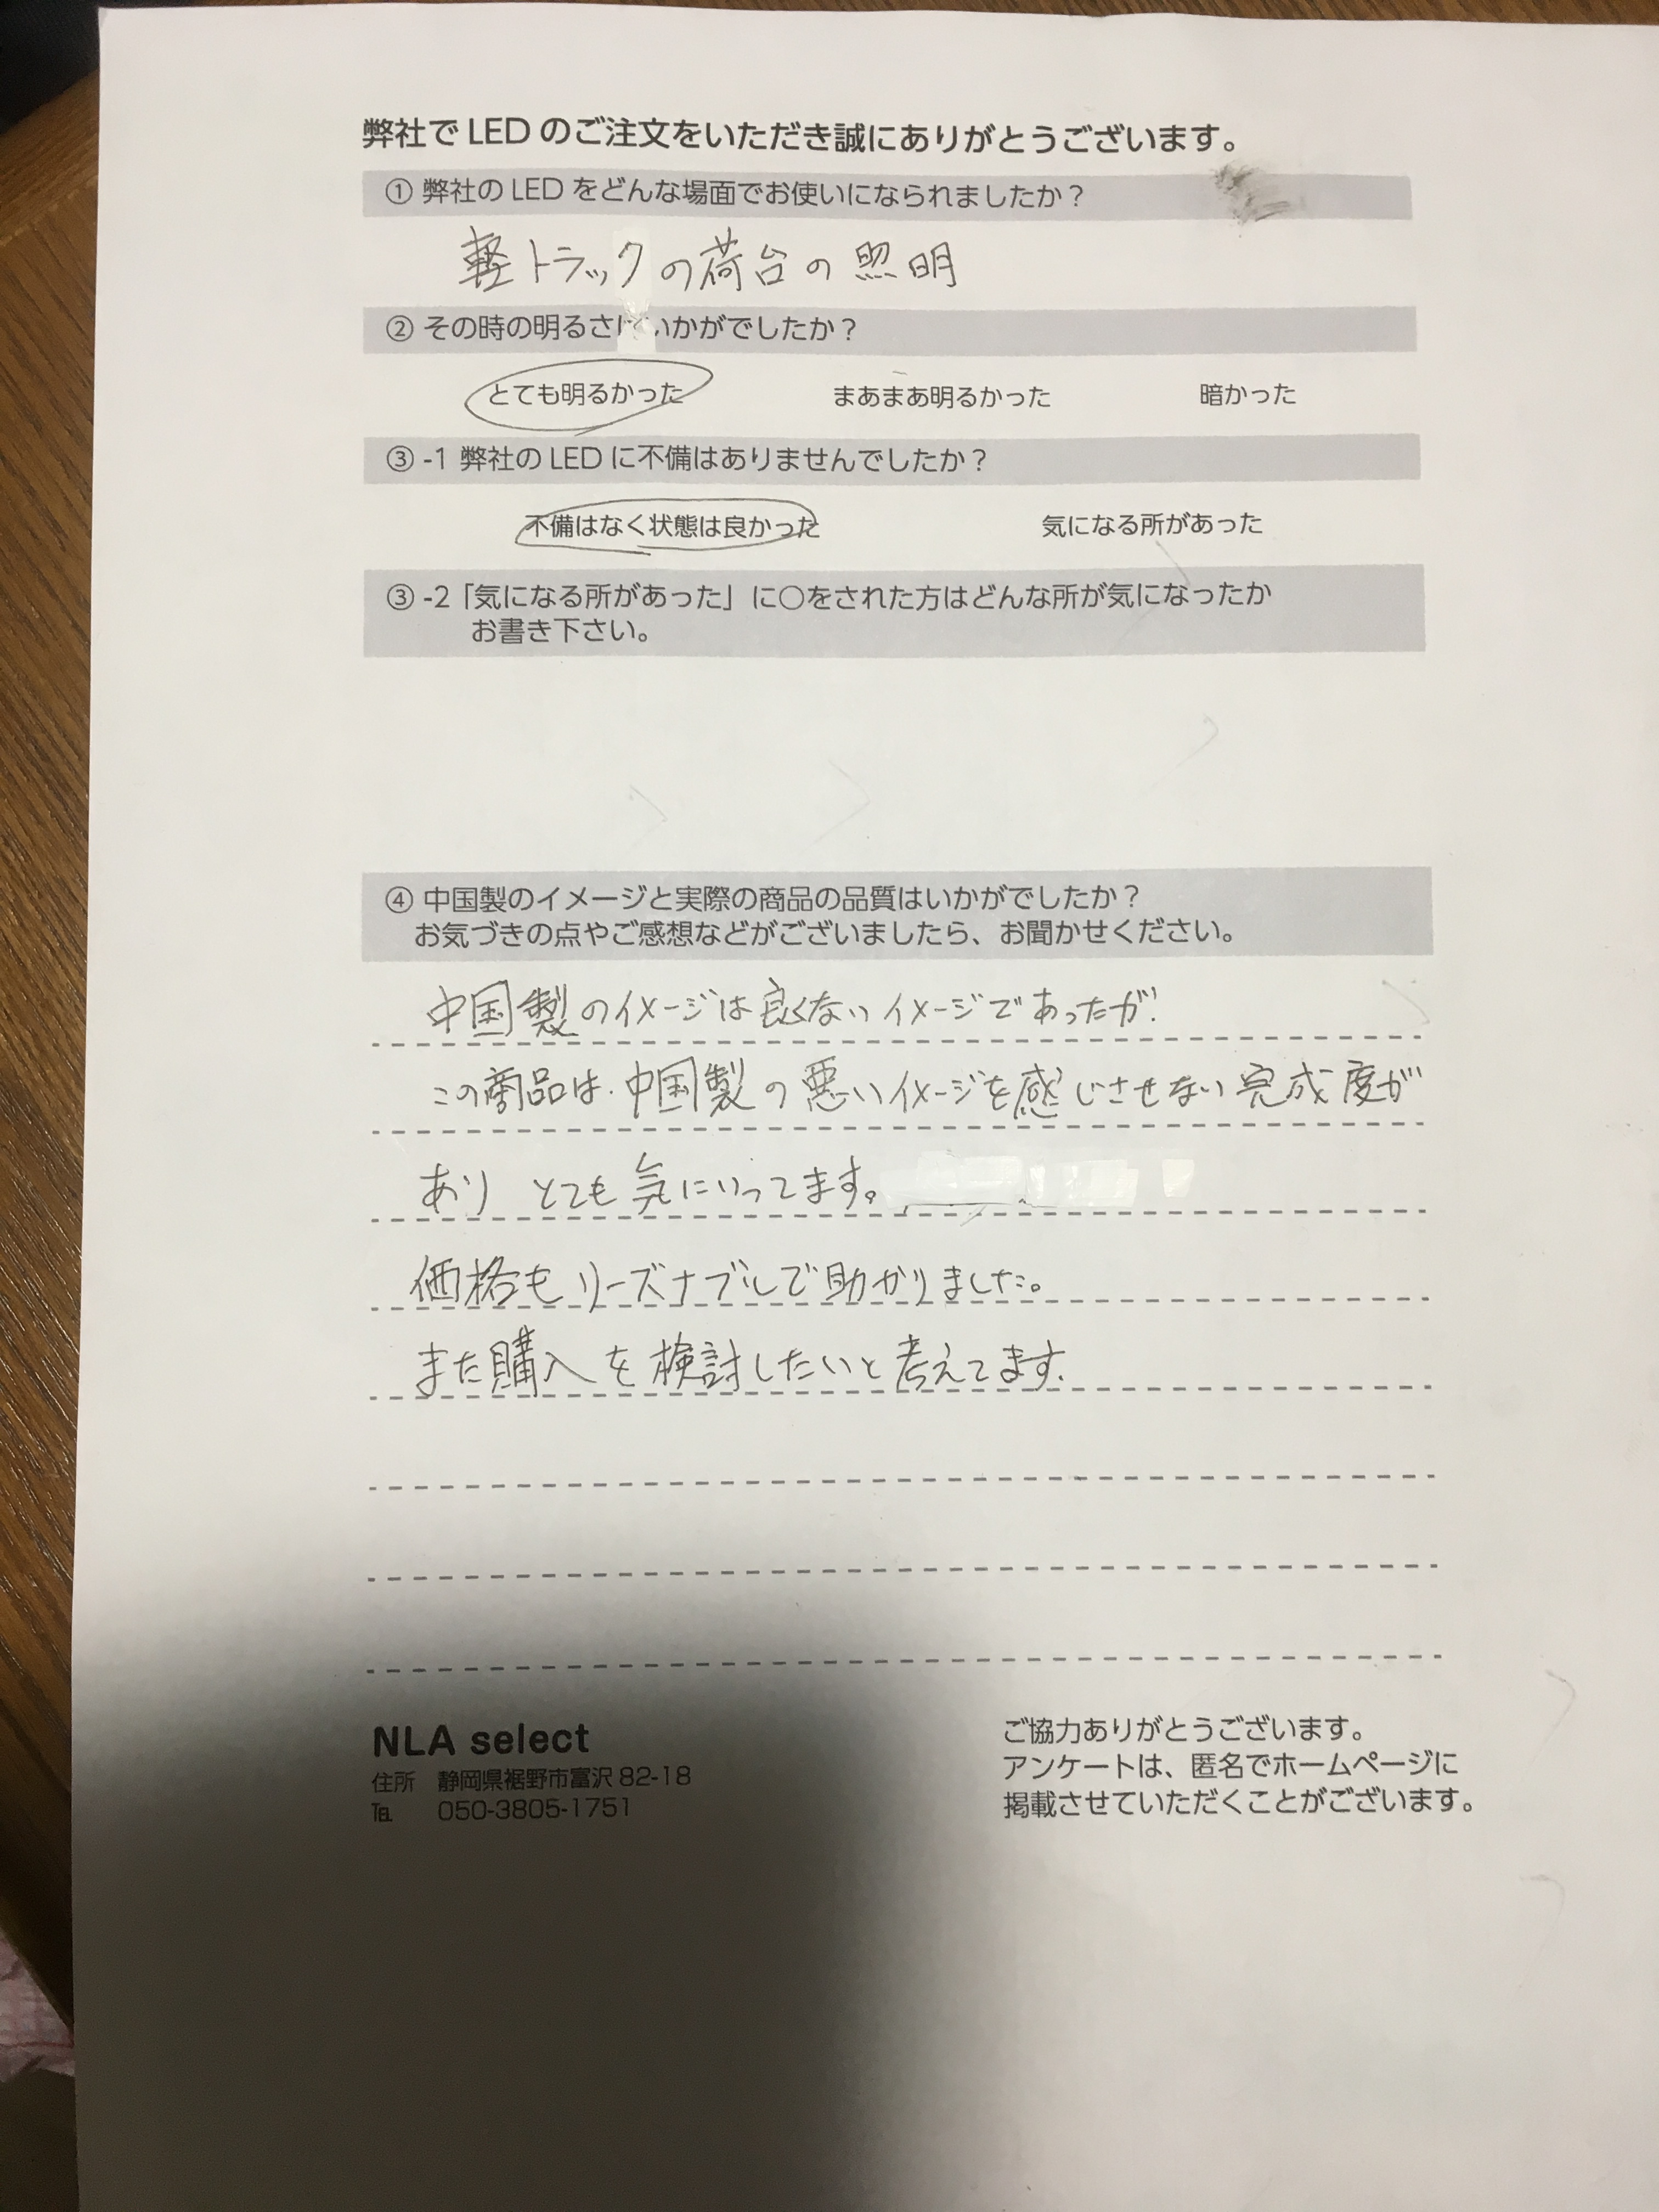 弊社で LED のご注文をいただき誠にありがとうございます。
① 弊社の LED をどんな場面でお使いになられましたか？
軽トラックの荷台の照明
② その時の明るさはいかがでしたか？
とても明るかった まあまあ明るかった 暗かった
③ -1 弊社の LED に不備はありませんでしたか？
不備はなく状態は良かった 気になる所があった
③ -2「気になる所があった」に○をされた方はどんな所が気になったか
お書き下さい。
④ 中国製のイメージと実際の商品の品質はいかがでしたか？
お気づきの点やご感想などがございましたら、お聞かせください。
中国製のイメージは良くないイメージであったが、
この商品は、中国製の悪いイメージを感じさせない完成度が
あり とても気にいってます。
価格もリーズナブルで助かりました。
また購入を検討したいと考えてます.
NLA select
住所 静岡県裾野市富沢 82-18
TEL 050-3805-1751
ご協力ありがとうございます。
アンケートは、匿名でホームページに
掲載させていただくことがございます。